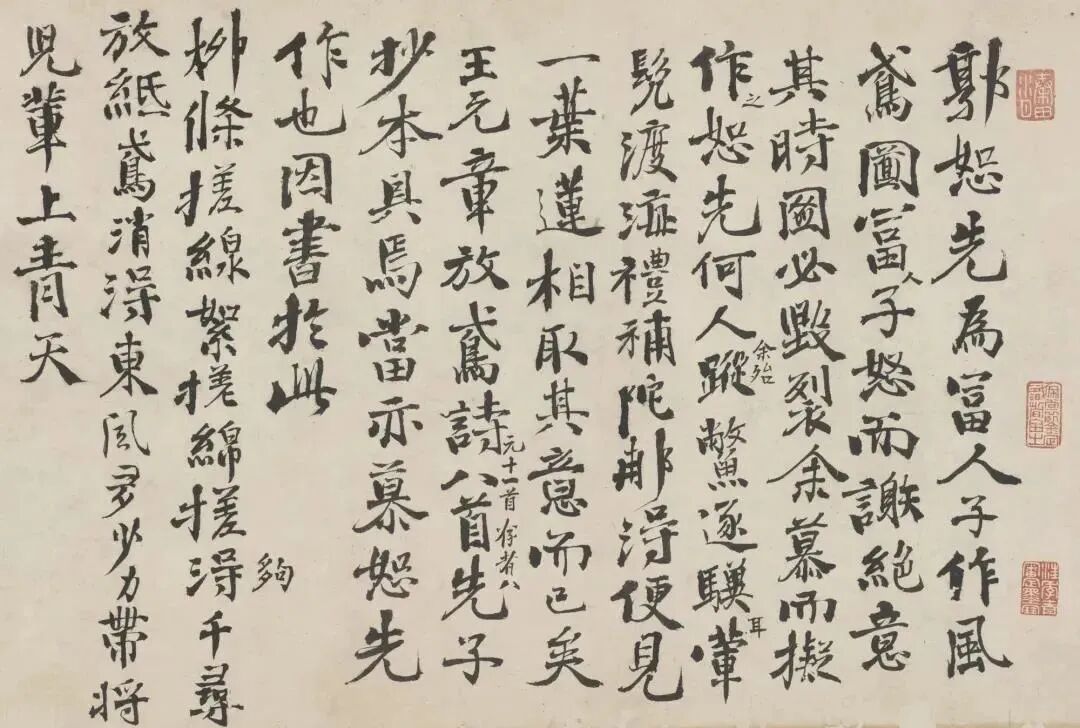 郭恕先為富人子作風
鳶圖富人子怒而謝絕意
其時圖必毀裂余慕而擬
作之恕先何人余殆蹤鱉逐驥輩耳
髡渡海禮補陀那得便見
一葉蓮相取其意而已矣
王元章放鳶詩元十一首存者八八首先子
抄本具焉當亦慕恕先
作也因書於此
夠
柳條搓線絮搓綿搓得千尋
放紙鳶消得東風多少力帶將
兒輩上青天